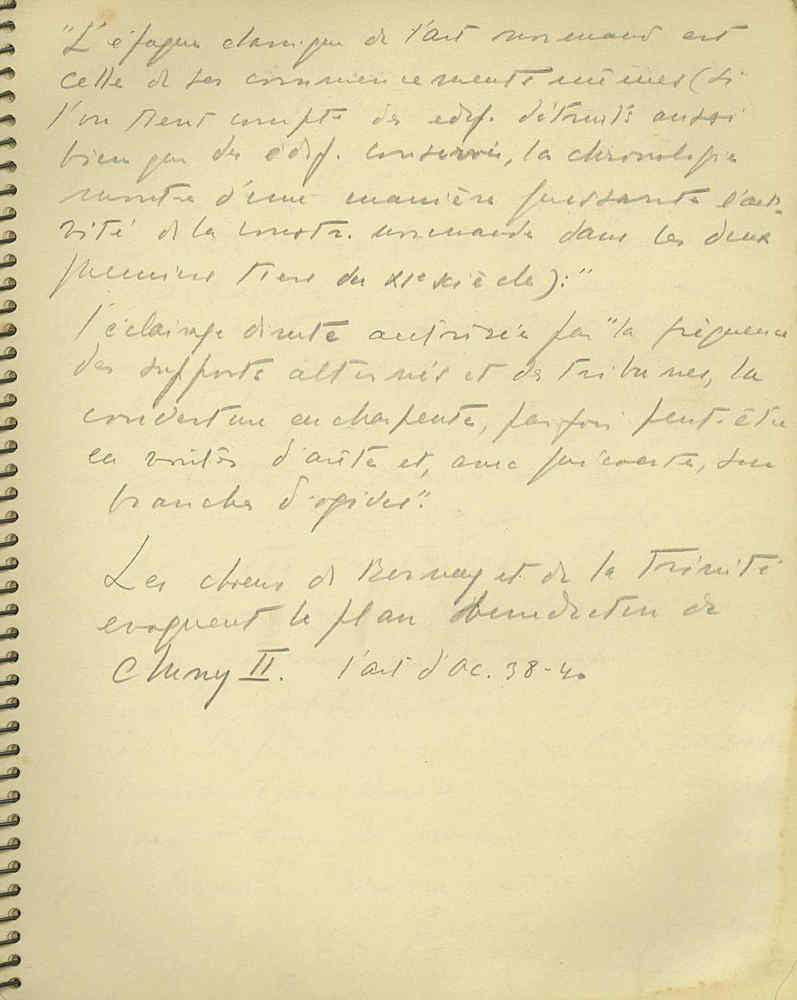 "L'époque classique de l'art normand est
celle de ses commencements mêmes (si
l'on tient compte des edif. détruits aussi
bien que des édif. conservés, la chronologie
montre d'une manière puissante l'acti-
vité de la constr. normande dans les deux
premiers tiers du XIe siècle):"
l'éclairage directe autorisée par "la fréquence
des supports alternés et des tribunes, la
couverture en charpente, parfois peut-être
en voûtes d'arête et, avec précocité, sur
branches d'ogives".
Les chœurs de Bernay et de la Trinité
evoquent le plan bénédictin de
Cluny II. l'art d'Oc. 38-40